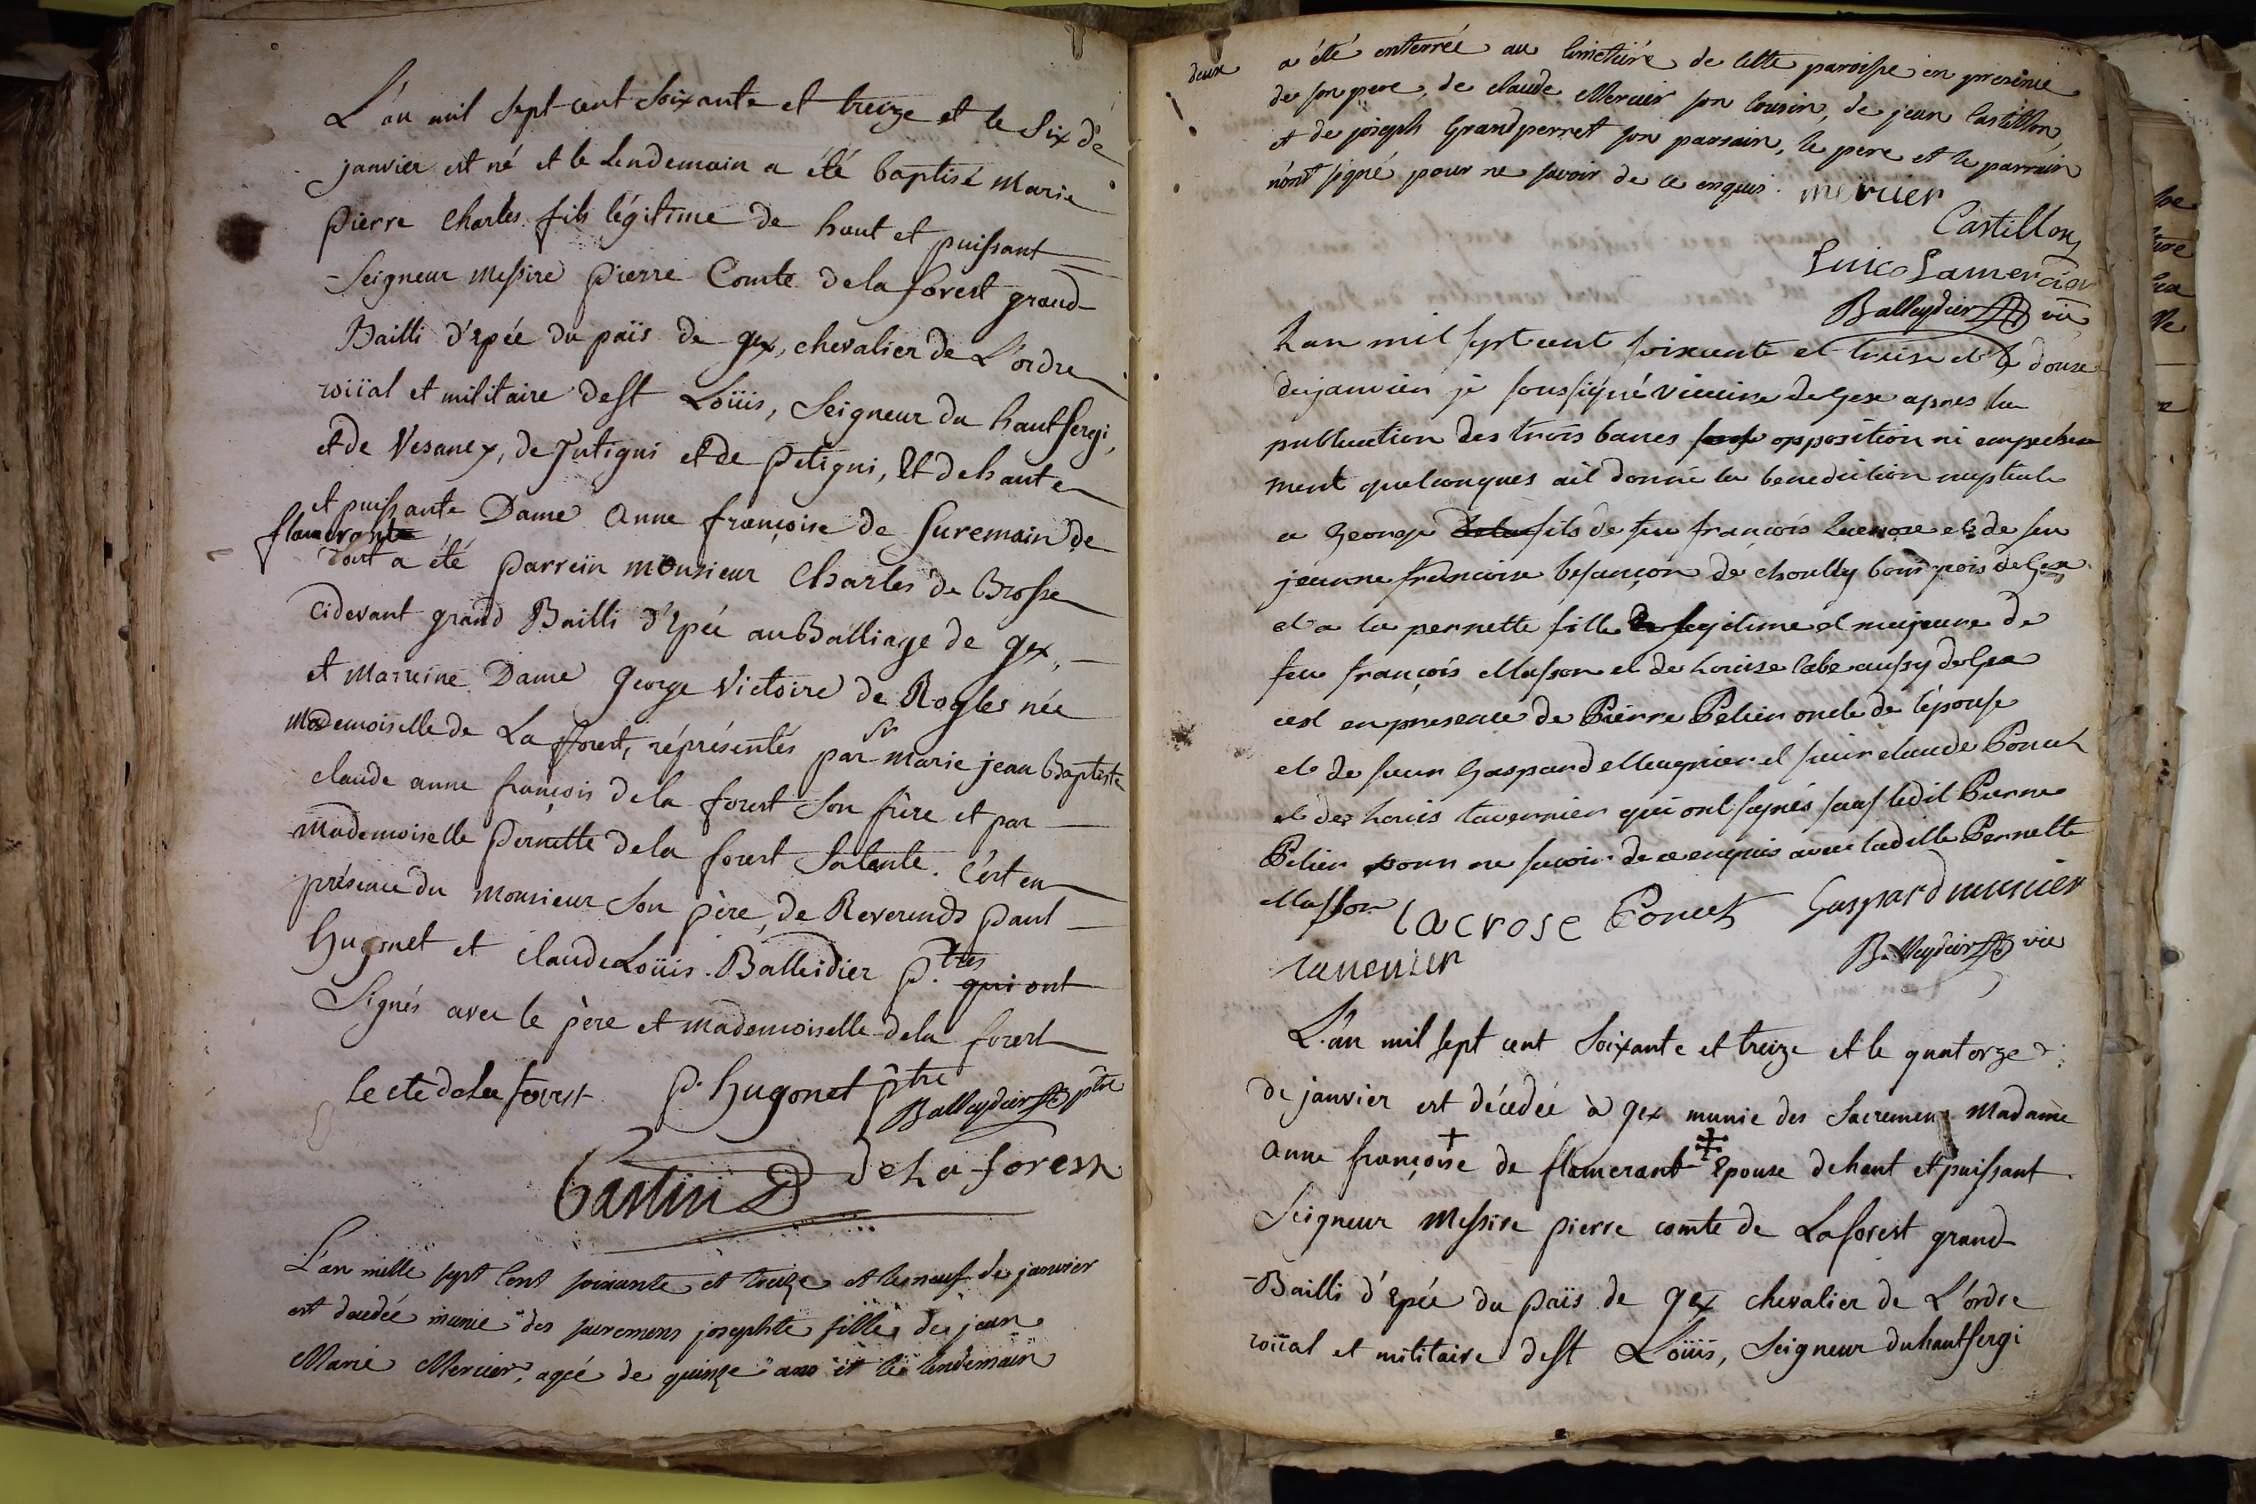 L'an mil sept cent soixante et treize et le six de
janvier est né et le Lendemain a été baptisé Marie
pierre charles fils légitime de haut et puissant
Seigneur Messire pierre Comte dela forest grand
Bailli d'Epée du païs de gex, chevalier de L'ordre
roiïal et militaire dest Loüis, Seigneur du hautsergi,
et de Vesaney, de Jutigni et de petigni, Et de haute
et puissante Dame anne françoise de Suremain de
flamerant
Dont a été parrein monsieur Charles de Brosse
cidevant grand Bailli d'Epée au Balliage de gex,
et Marreine Dame george Victoire de Rogles née
Mademoiselle de La fforest, réprésentés par Sr marie jean Baptiste
claude anne françois dela forest son frère et par
Mademoiselle pernette dela forest sa tente. C'est en
présence du monsieur son père, de Reverends paul
hugonet et claude Loüis Balleidier p.tres qui ont
Signés avec le père et mademoiselle dela forest
le cte dela forest p. hugonet ptre
Balleydier ptre
Castin De La forest
L'an mille sept cent soixante et treize et le neuf de janvier
est decedée munie des sacremens josephte fille de jean
Marie Mercier, agée de quinze ans et le lendemain
deux
a été enterrée au cimetière de cette paroisse en presence
de son pere, de claude Mercier son cousin, de jean Castillon,
et de joseph Grandperret son parrain, le pere et le parrain
n'ont signé pour ne savoir de ce enquis. mercier
Castillon
Balleydier vic
Lan mil sept cent soixante et treise et le douse
de janvier je soussigné vicaire de Gex apres la
publication des trois banes sans opposition ni empeche
ment quelconques ait donné la benediction nuptiale
a George fils de feu françois Lacrose et de feu
jeanne francoise besançon de choully bourgois de Gex
et a la pernette fille legitime et majeure de
feu françois Masson et de Louise labe aussy de Gex
cest en presence de Pierre Pelier oncle de l'épouse
et de sieur Gaspard Meugnier et sieur claude Poncet
et de Louis tavernier qui ont signés sauf ledit Pierre
Pelier pour ne savoir de ce enquis avec ladille Pernette
Masson Lacrose Poncet Gaspard munier
tavenier
Balleydier vic
L'an mil sept cent soixante et treize et le quatorze
de janvier est décédée à gex munie des Sacremens Madame
anne françoise de flamerant Epouse de haut et puissant
Seigneur Messire pierre comte de Laforest grand
Bailli d'Epée du païs de gex chevalier de L'ordre
roiïal et militaire dest Loüis, Seigneur du hautsergi